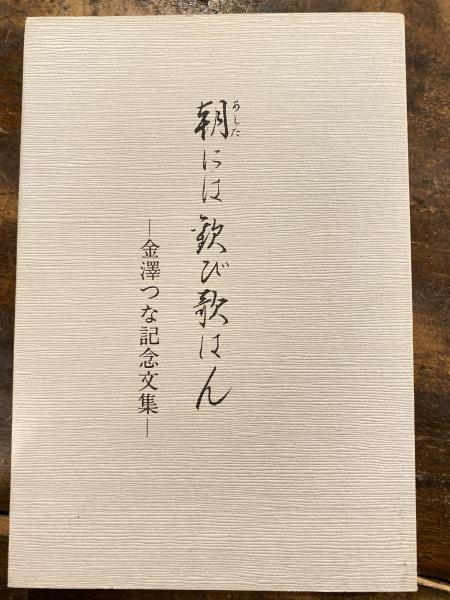 朝には歓び歌はん
あした
―金澤つな記念文集―